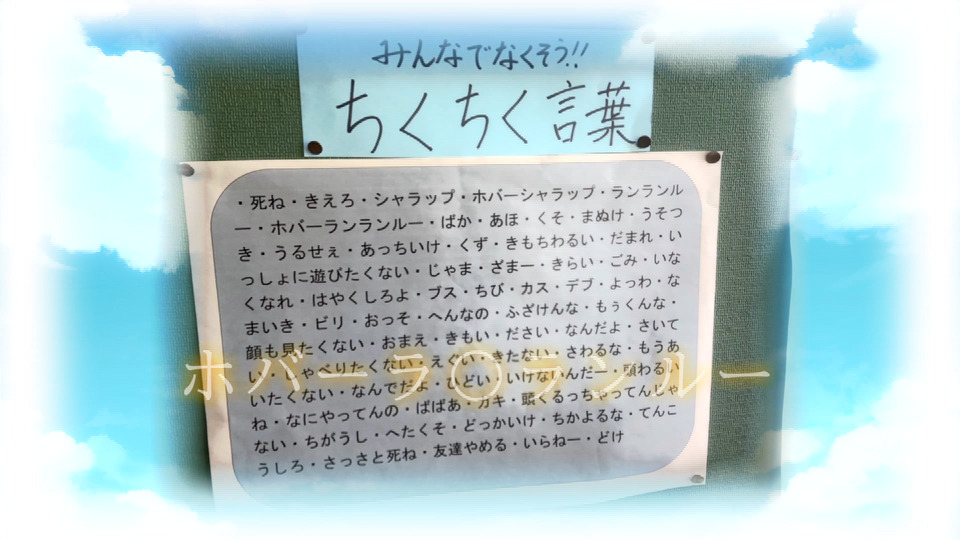 みんなでなくそう!!
ちくちく言葉
・死ね・きえろ・シャラップ・ホバーシャラップ・ランランル
ー・ホバーランランルー・ばか・あほ・くそ・まぬけ・うそつ
き・うるせぇ・あっちいけ・くず・きもちわるい・だまれ・い
っしょに遊びたくない・じゃま・ざまー・きらい・ごみ・いな
くなれ・はやくしろよ・ブス・ちび・カス・デブ・よっわ・な
まいき・ビリ・おっそ・へんなの・ふざけんな・もぅくんな・
顔も見たくない・おまえ・きもい・ださい・なんだよ・さいて
ゃべりたくない・えぐい・きたない・さわるな・もうあ
ホバーラ〇ランルー
いたくない・なんでだよ・ひどい・いけないんだー・頭わるい
ね・なにやってんの・ばばあ・ガキ・頭くるっちゃってんじゃ
ない・ちがうし・へたくそ・どっかいけ・ちかよるな・てんこ
うしろ・さっさと死ね・友達やめる・いらねー・どけ